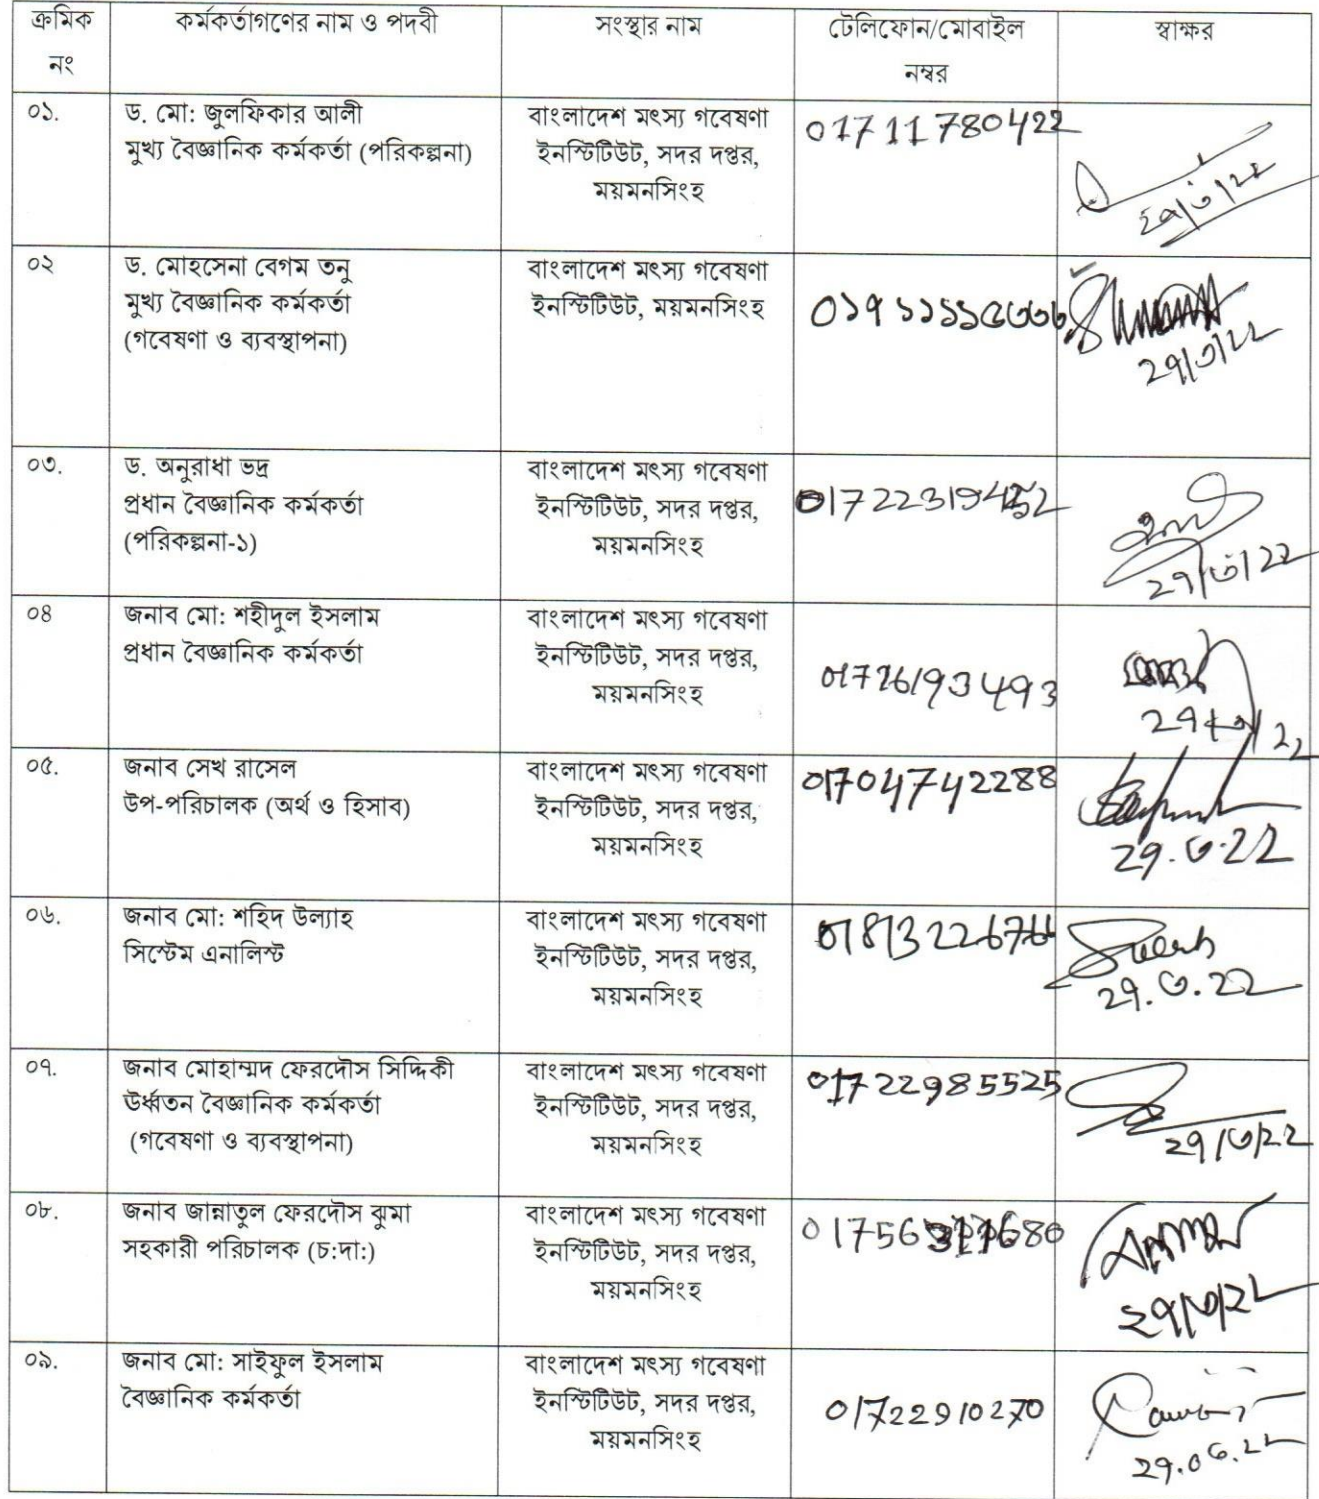 ক্রমিক নং
কর্মকর্তাগণের নাম ও পদবী
সংস্থার নাম
টেলিফোন/মোবাইল নম্বর
স্বাক্ষর
০১.
ড. মো: জুলফিকার আলী
মুখ্য বৈজ্ঞানিক কর্মকর্তা (পরিকল্পনা)
বাংলাদেশ মৎস্য গবেষণা
ইনস্টিটিউট, সদর দপ্তর,
ময়মনসিংহ
01711780422
২৯/৩/২২
০২
ড. মোহসেনা বেগম তনু
মুখ্য বৈজ্ঞানিক কর্মকর্তা
(গবেষণা ও ব্যবস্থাপনা)
বাংলাদেশ মৎস্য গবেষণা
ইনস্টিটিউট, ময়মনসিংহ
২৯/৩/২২
০৩.
ড. অনুরাধা ভদ্র
প্রধান বৈজ্ঞানিক কর্মকর্তা
(পরিকল্পনা-১)
বাংলাদেশ মৎস্য গবেষণা
ইনস্টিটিউট, সদর দপ্তর,
ময়মনসিংহ
২৯/৩/২২
০৪
জনাব মো: শহীদুল ইসলাম
প্রধান বৈজ্ঞানিক কর্মকর্তা
বাংলাদেশ মৎস্য গবেষণা
ইনস্টিটিউট, সদর দপ্তর,
ময়মনসিংহ
01726193493
২৯/৩/২২
০৫.
জনাব সেখ রাসেল
উপ-পরিচালক (অর্থ ও হিসাব)
বাংলাদেশ মৎস্য গবেষণা
ইনস্টিটিউট, সদর দপ্তর,
ময়মনসিংহ
01704742288
২৯.৩.২২
০৬.
জনাব মো: শহিদ উল্যাহ
সিস্টেম এনালিস্ট
বাংলাদেশ মৎস্য গবেষণা
ইনস্টিটিউট, সদর দপ্তর,
ময়মনসিংহ
২৯.৩.২২
০৭.
জনাব মোহাম্মদ ফেরদৌস সিদ্দিকী
উর্ধ্বতন বৈজ্ঞানিক কর্মকর্তা
(গবেষণা ও ব্যবস্থাপনা)
বাংলাদেশ মৎস্য গবেষণা
ইনস্টিটিউট, সদর দপ্তর,
ময়মনসিংহ
01722985525
২৯/৩/২২
০৮.
জনাব জান্নাতুল ফেরদৌস ঝুমা
সহকারী পরিচালক (চ:দা:)
বাংলাদেশ মৎস্য গবেষণা
ইনস্টিটিউট, সদর দপ্তর,
ময়মনসিংহ
২৯/৩/২২
০৯.
জনাব মো: সাইফুল ইসলাম
বৈজ্ঞানিক কর্মকর্তা
বাংলাদেশ মৎস্য গবেষণা
ইনস্টিটিউট, সদর দপ্তর,
ময়মনসিংহ
01722910270